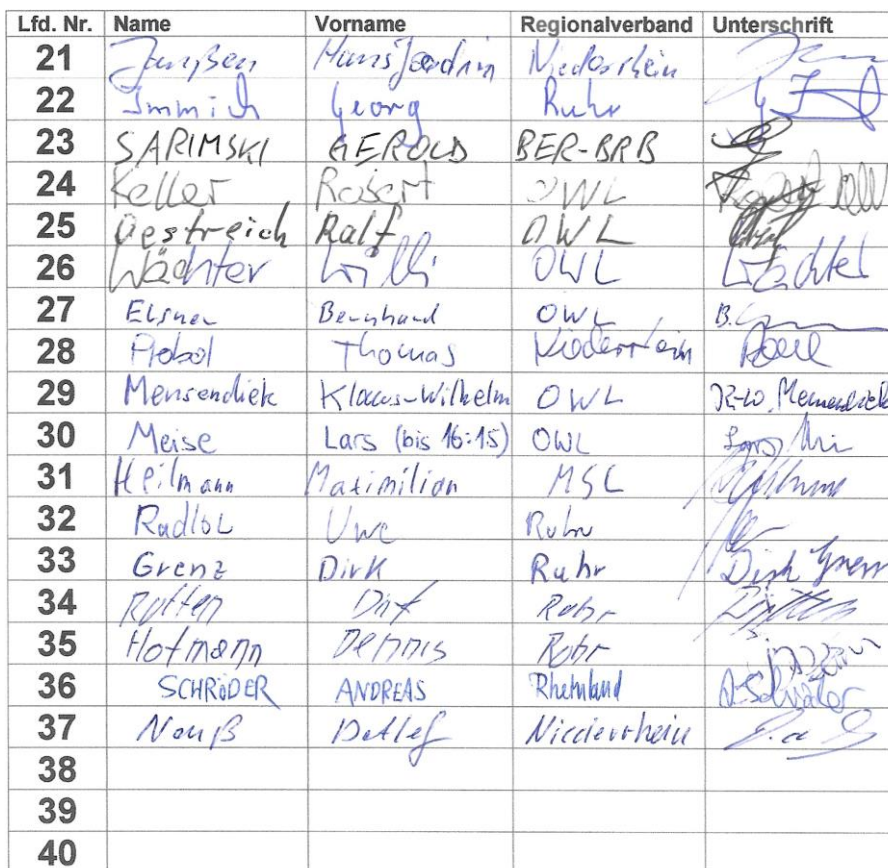 Lfd. Nr. Name Vorname Regionalverband Unterschrift
21 Janßen Hans Joachim Niederrhein
22 Immich Georg Ruhr
23 SARIMSKI GEROLD BER-BRB
24 Keller Robert OWL
25 Oestreich Ralf OWL
26 Wächter Willi OWL Wächter
27 Elsner Bernhard OWL
28 Thomas Niederrhein
29 Mensendiek Klaus-Wilhelm OWL K-W. Mensendiek
30 Meise Lars (bis 16:15) OWL
31 Heilmann Maximilian MSL
32 Uwe Ruhr
33 Grenz Dirk Ruhr Dirk Grenz
34 Rotten Ruhr
35 Hofmann Dennis Ruhr
36 SCHRöDER ANDREAS Rheinland A. Schröder
37 Nauß Detlef Niederrhein
38
39
40